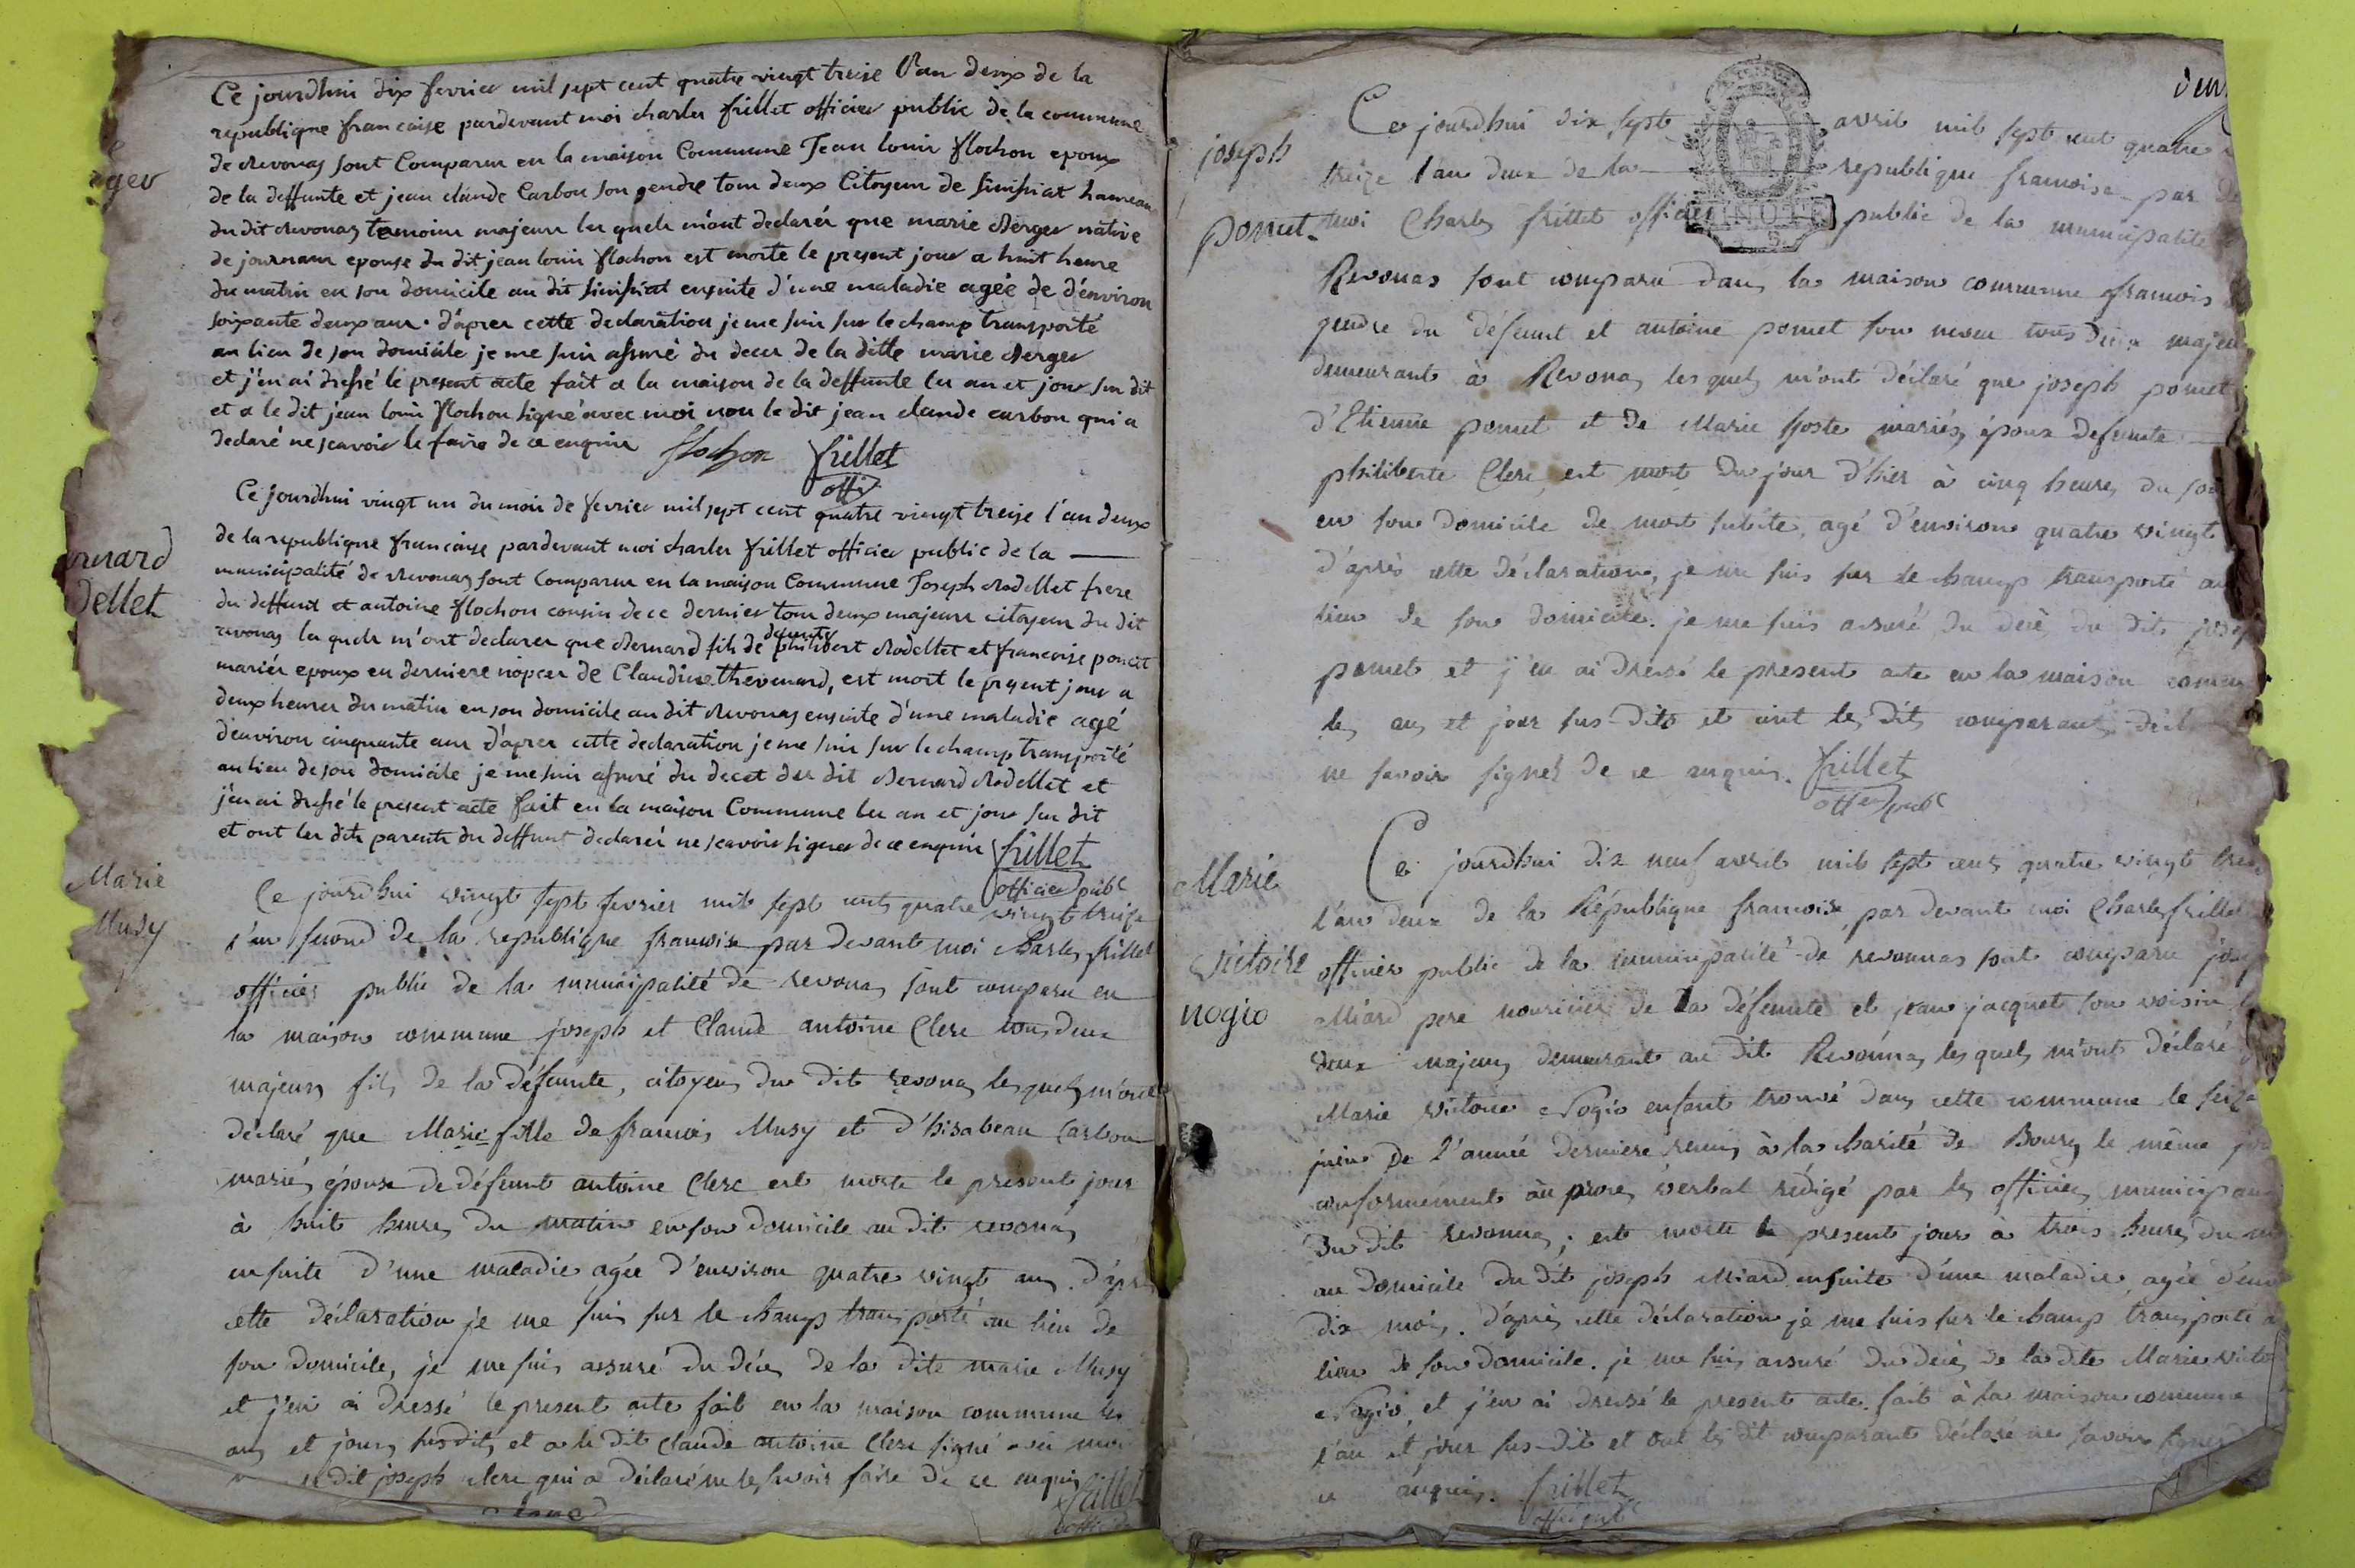 Ce jourdhui dix fevrier mil sept cent quatre vingt treise l'an deux de la
republique francaise pardevant moi charles frillet officier public de la commune
de Revonas sont Comparus en la maison Commune Jean louis flochon epoux
de la deffunte et jean claude Carbon son gendre tous deux Citoyens de Simsiat hameau
du dit Revonas temoins majeurs les quels m'ont declarés que marie Berger native
de journans epouse du dit jean louis flochon est morte le present jour a huit heure
du matin en son domicile au dit simsiat ensuite d'une maladie agée de d'environ
soixante deux ans. d'apres cette declaration je me suis sur le champ transporté
au lieu de son domicile je me suis assuré du deces de la ditte marie Berger
et j'en ai dressé le present acte fait a la maison de la deffunte les an et jour sus dit
et a le dit jean louis flochon signé avec moi non le dit jean claude carbon qui a
declaré ne scavoir le faire de ce enquis flochon frillet
offi
ger
Ce jourdhui vingt un du mois de fevrier mil sept cent quatre vingt treise l'an deux
de la republique francaise pardevant moi charles frillet officier public de la
municipalité de Revonas sont Comparus en la maison Commune Joseph Rodellet frere
du deffunt et antoine flochon cousin de ce dernier tous deux majeurs citoyens du dit
revonas les quels m'ont declarer que Bernard fils de defunts philibert Rodellet et francoise poncet
mariés epoux en derniere nopces de Claudine thevenard, est mort le present jour a
deux heures du matin en son domicile au dit Revonas ensuite d'une maladie agé
d'environ cinquante ans d'apres cette declaration je me suis sur le champ transporté
au lieu de son domicile je me suis assuré du decet des dit Bernard Rodellet et
j'en ai dressé le present acte fait en la maison Commune les an et jour sus dit
et ont les dits parents du deffunt declarés ne scavoir signer de ce enquis frillet
officier publ
nard
dellet
Marie
Musy
Ce jourd'hui vingt sept fevrier mil sept cents quatre vingt treize
l'an second de la republique francoise par devant moi Charles frillet
officier public de la municipalité de revonas sont comparu en
la maison commune joseph et Claude antoine Clerc tous deux
majeurs fils de la défeunte, citoyens du dit revonas les quels m'ont
déclaré que Marie fille de francois Musy et d'hisabeau Carbon
mariés épouse de défeunt antoine Clerc est morte le présent jour
à huit heures du matin en son domicile au dit revonas
ensuite d'une maladie agée d'environ quatre vingt ans. d'après
cette déclaration je me suis sur le champ transporté au lieu de
son domicile, je me suis assuré du décès de la dite marie Musy
et j'en ai dressé le present acte fait en la maison commune les
ans et jours susdits et a le dit claude antoine Clerc signé avec moi
dit joseph clerc qui a déclaré ne le savoir faire de ce enquis frillet
joseph
pomet
Ce jourdhui dix sept avril mil sept cent quatre
treize l'an deux de la republique francoise par de
moi Charles frillet officier public de la municipalité
Revonas sont comparu dans la maison commune francois
gendre du défeunt et antoine pomet son neveu tous deux majeurs
demeurants à Revonas lesquels m'ont déclaré que joseph pomet
d'Etienne pomet et de Marie hoste mariés, époux defeunte
philiberte Clerc, est mort du jour d'hier à cinq heures du soir
en son domicile de mort subite, agé d'environ quatre vingt
d'après cette déclaration, je me suis sur le champ transporté au
lieu de son domicile. je me suis assuré du décè du dit joseph
pomet et j'en ai dressé le present acte en la maison commune
les ans et jour sus-dits et ont les dits comparants déclaré
ne savoir signer de ce enquis. frillet
offer publ
Marie
victoire
nogio
Ce jourdhui dix neuf avril mil sept cens quatre vingt treize
l'an deux de la République francoise, par devant moi Charles frillet
officier public de la municipalité de revonnas sont comparu joseph
Miard pere nouricier de la défeunte et jean jacquet son voisin
deux majeurs demeurants au dit Revonnas les quels m'ont déclaré
Marie victoire Nogio enfant trouvé dans cette commune le seize
juin de l'année derniere remis à la charité de Bourg le même jour
conformement au procès verbal rédigé par les officiers municipaux
du dit revonnas; est morte le present jour à trois heures du
au domicile du dit joseph Miard ensuite d'une maladie, agée d'environ
dix mois. d'après cette déclaration je me suis sur le champ transporté
lieu de son domicile. je me suis assuré du décès de la dite Marie victoire
Nogio, et j'en ai dressé le present acte. fait à la maison commune
l'an et jour sus-dit et ont les dit comparant déclaré ne savoir signer
ce enquis. frillet
offer publ